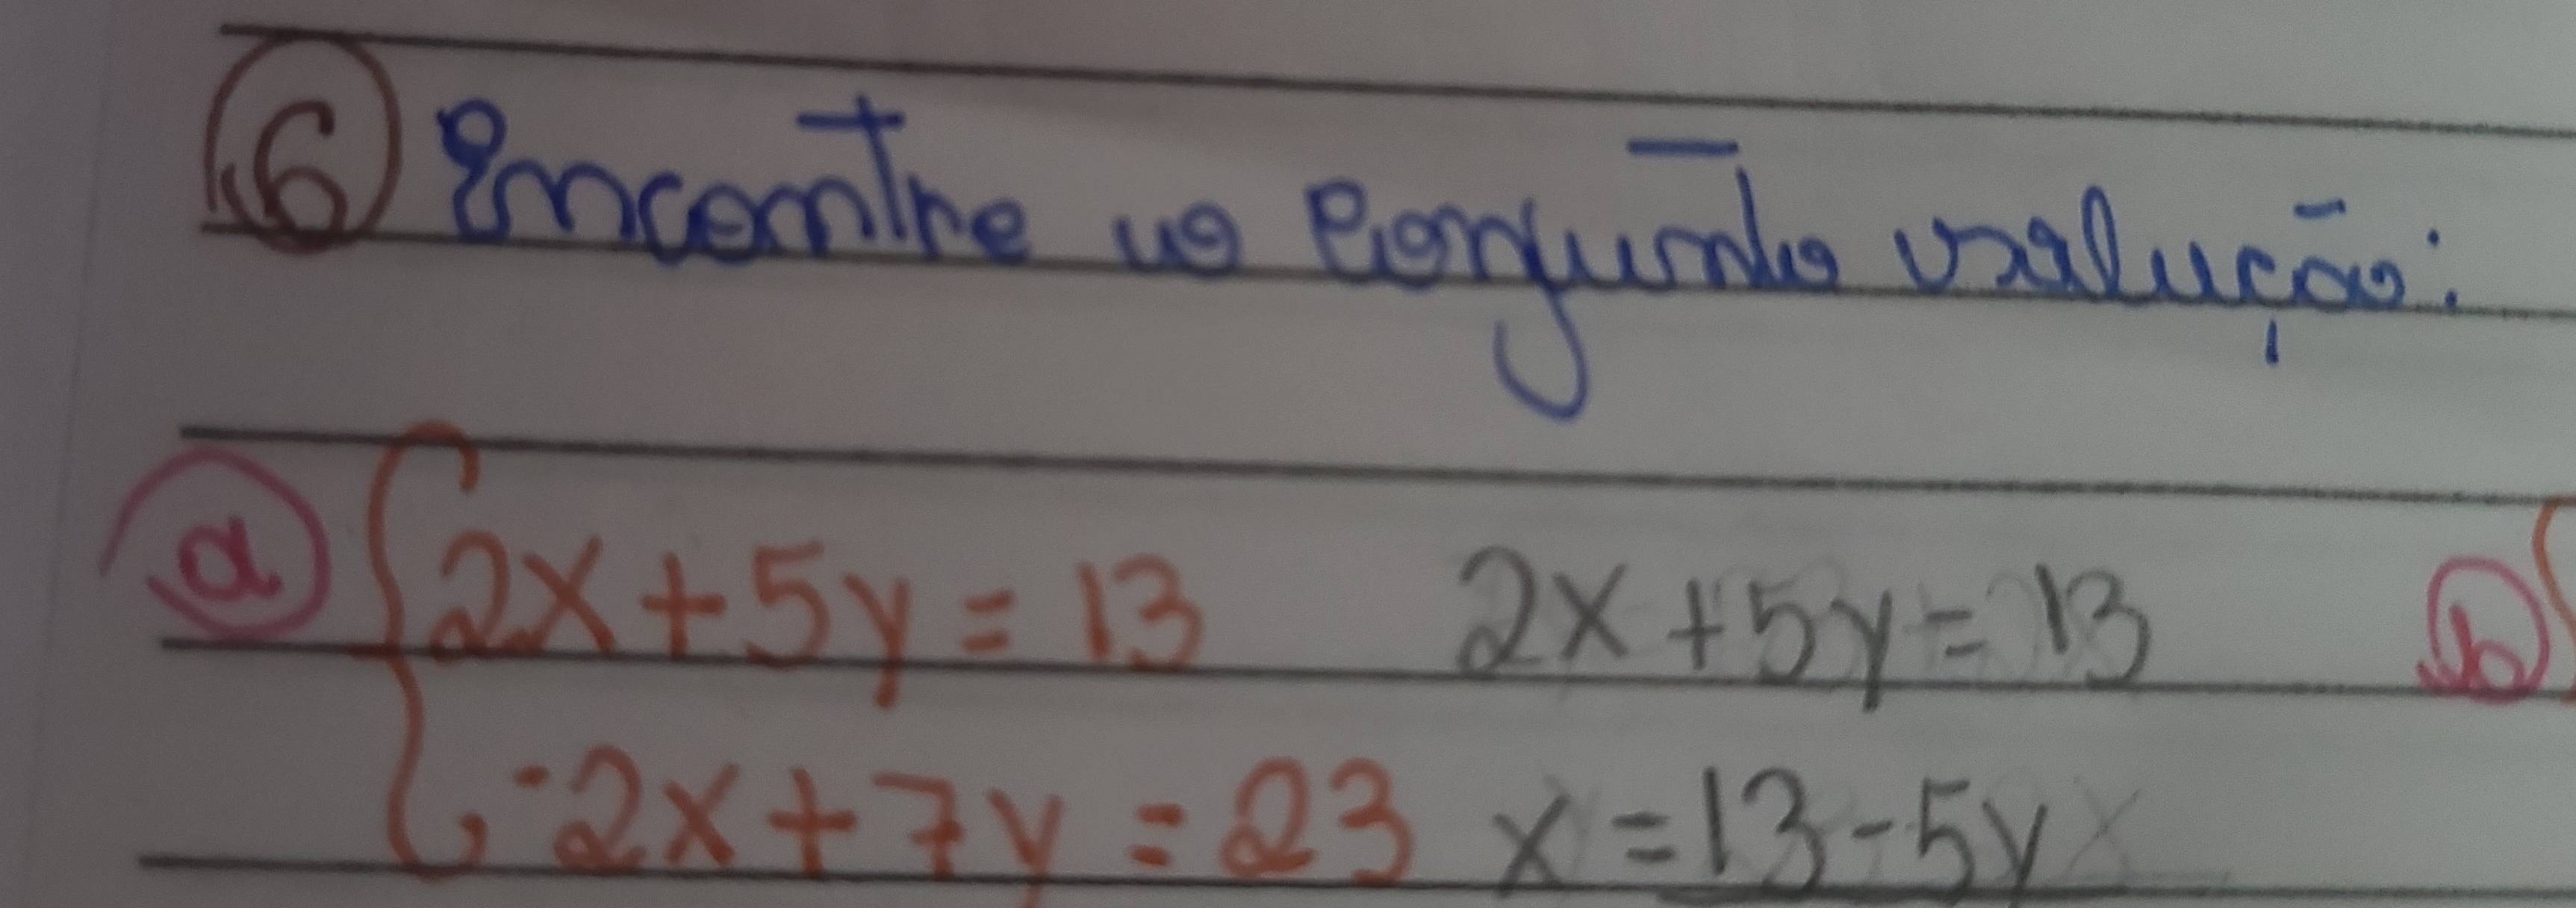 6 Encontre o conjunto solução:
a 2x+5y=13 2x+5y=13 b
-2x+7y=23 x=13-5y